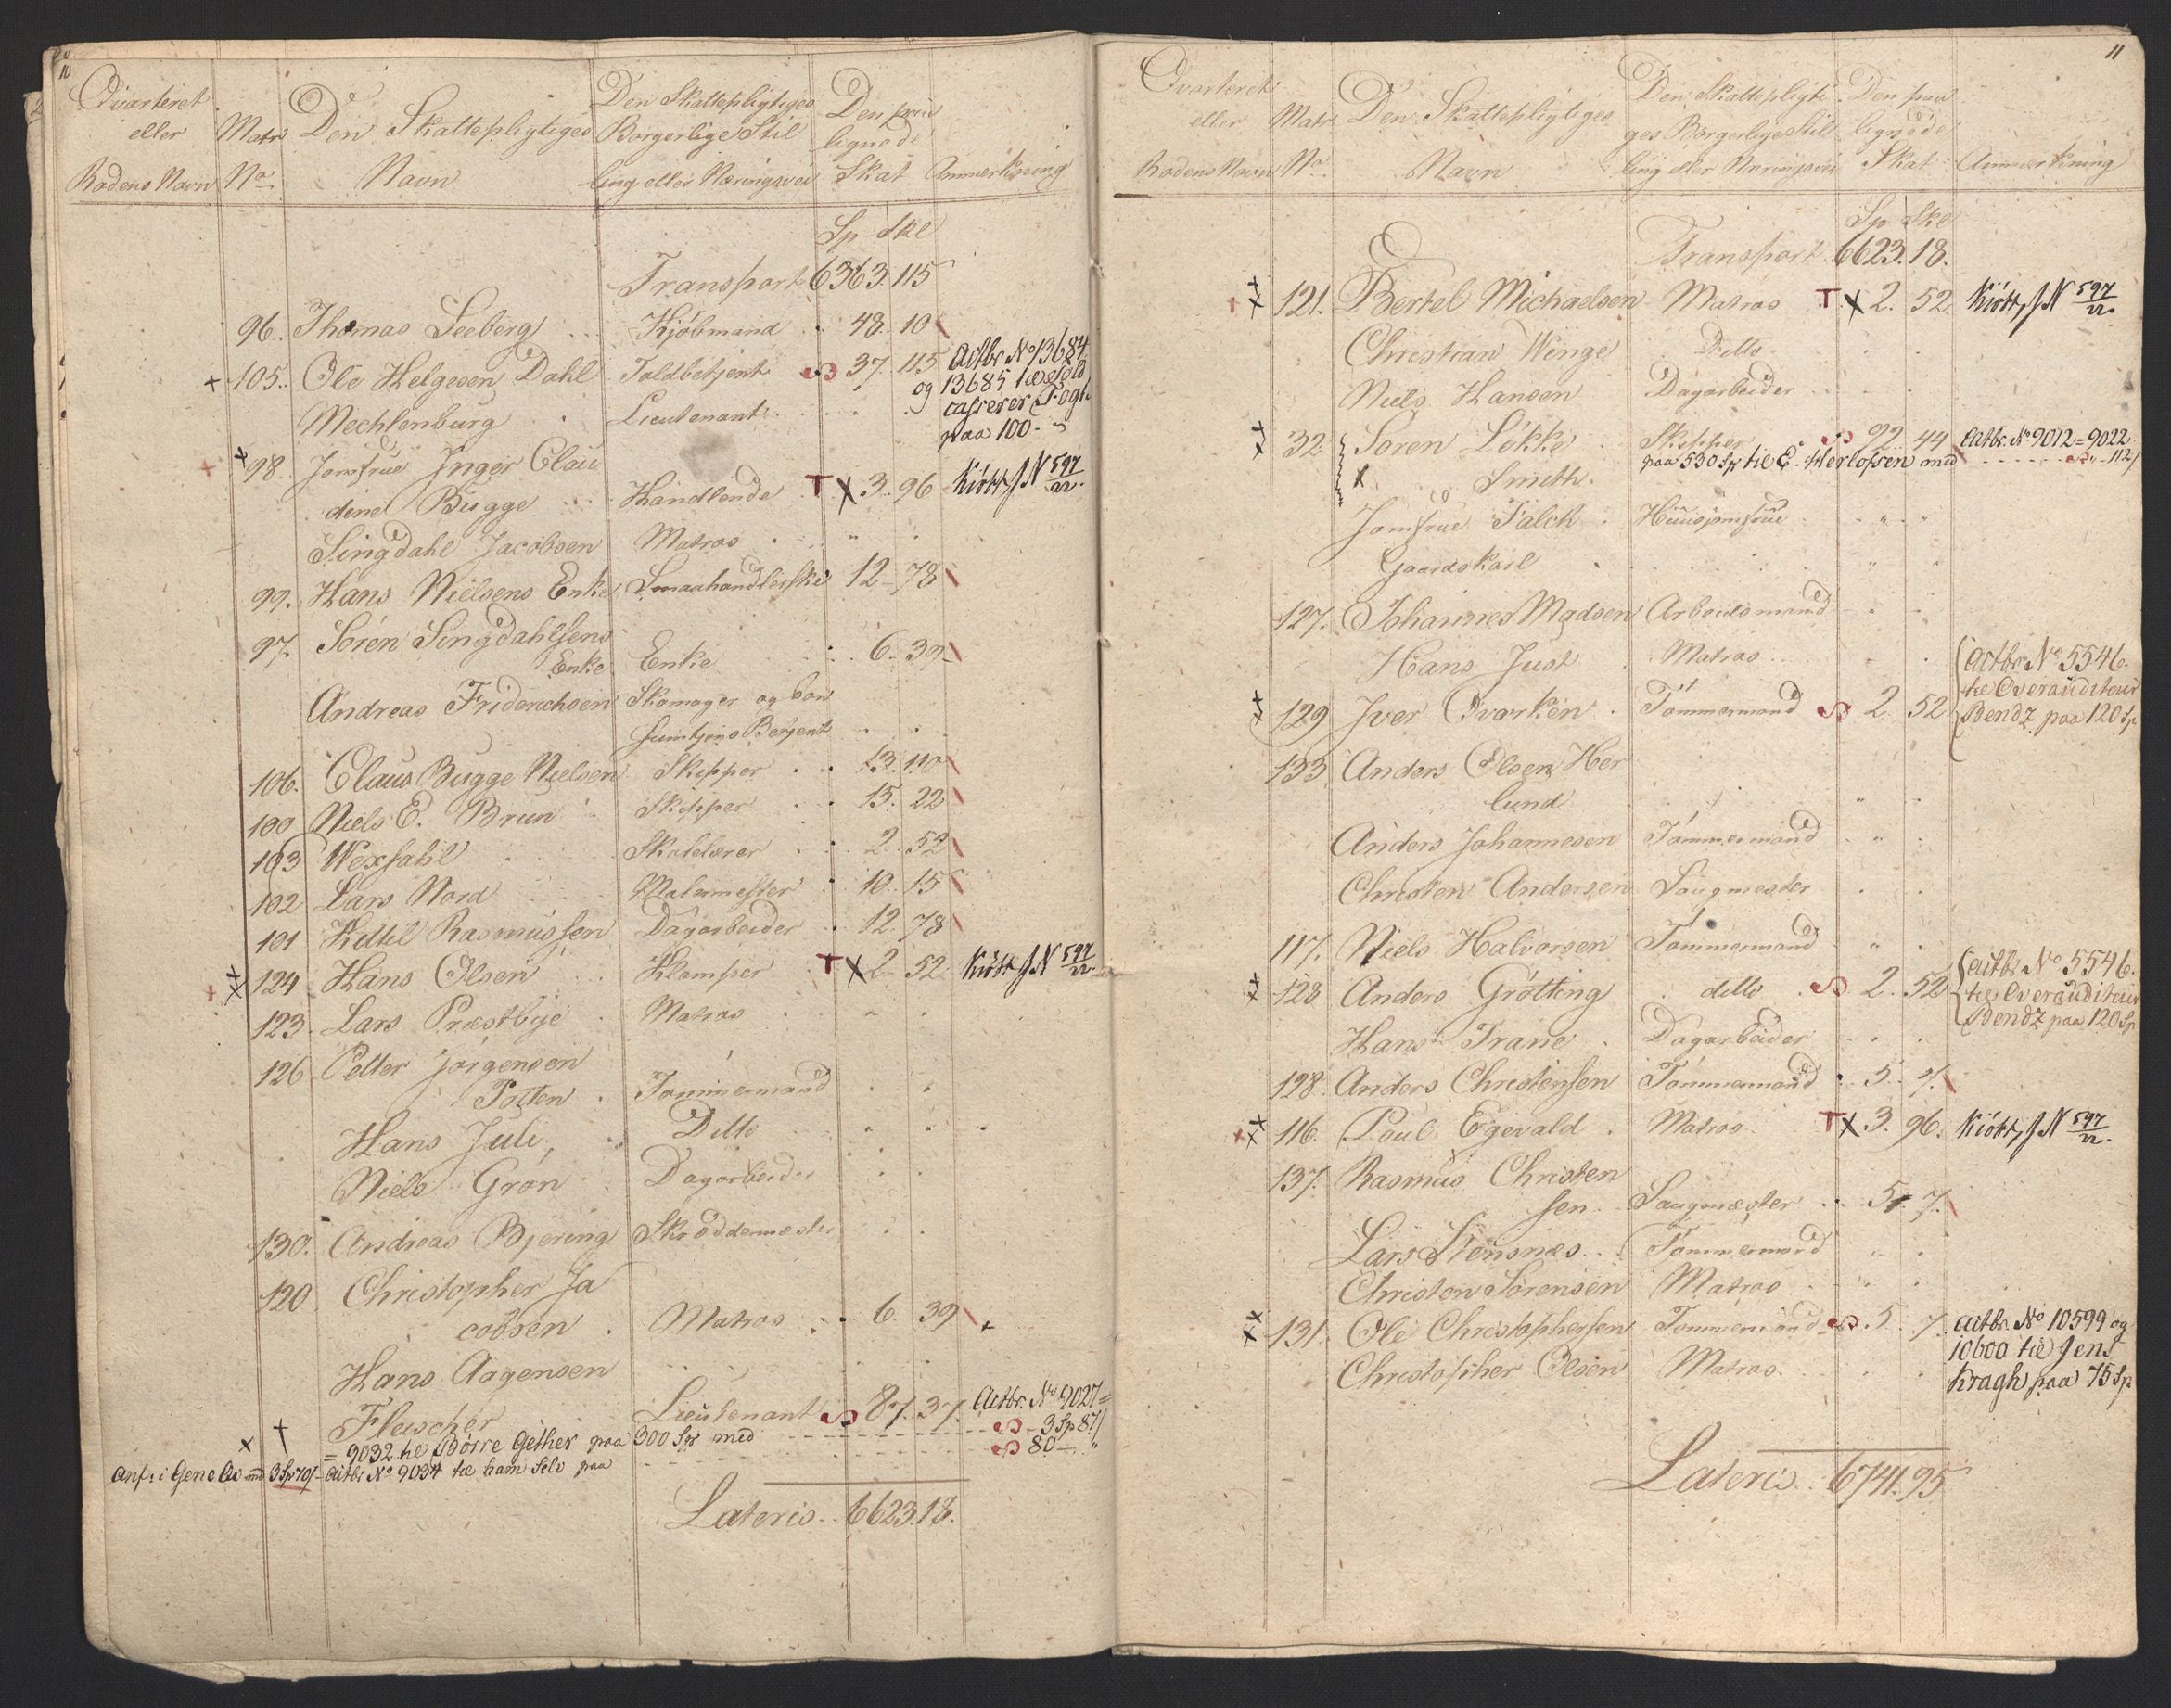 10
Qvarteret eller Rodens Navn | Matr No | Den Skattepligtiges Navn | Den Skattepligtiges Borgerlige Stilling eller Næringsvei | Den paalignede Skat | Anmærkning
Sp Skl
Transport 6363. 115
96. Thomas Seeberg Kjöbmand 48. 10
+ 105. Ole Helgesen Dahl Toldbetjent S 37. 115 Actbr. No 13684
og 13685 til
Mechlenburg Lieutenant casserer Fogh
paa 100
+ + 98. Jomfrue Inger Clau
dine Bugge Handlende T X 3. 96 Kiött, J N 597/22.
Singdahl Jacobsen Matros
99. Hans Nielsens Enke Smaahandlerske 12 78
97. Sören Singdahlsens
Enke Enke 6. 39
Andreas Friderichsen Skomager og Con
sumtjons Betjent
106. Claus Bugge Nielsen Skipper 13. 110
100 Niels E. Brun Skipper 15. 22
103 Wexsahl Skolelærer 2. 52
102 Lars Nord Malermester 10. 15
101 Kittil Rasmussen Dagarbeider 12. 78
+ ++ 124 Hans Olsen Klamper T X 2. 52 Kiött J N 597/22.
123. Lars Præstbye Matros
126 Petter Jörgensen
Potten Tömmermand
Hans Juli, Ditto
Niels Grön Dagarbeider
130. Andreas Bjering Skræddermester
120 Christopher Ja
cobsen Matros 6. 39
Hans Aagensen
Fleischer Lieutenant S 87. 37. Actbr. No 9027=
x + = 9032 til Börre Gether paa 300 Sp med S 3 Sp 87/
Anf: i Gene med 3 Sp 70/ Actbr No 9034 til ham selv paa S 80
Lateris 6623. 18.
11
Qvarteret eller Rodens Navn | Matr No | Den Skattepligtiges Navn | Den Skattepligtiges Borgerlige Stilling eller Næringsvei | Den paalignede Skat | Anmærkning
Sp Skl
Transport 6623. 18.
+ ++ 121. Bertel Michaelsen Matros T. X 2. 52. Kiött, J N 597/22.
Christian Winge Ditto
Niels Hansen Dagarbeider
++ 32 Sören Lökke Skipper S 92. 44 Actbr. No 9012=9022
paa 530 Sp til E. Herlofsen med S " 112/
X Smith.
Jomfrue Falck Huusjomfrue
Gaardskarl
127. Johannes Madsen Arbeidsmand
Hans Just Matros Actbr No 5546.
til Overauditeur
++ 129 Iver Qvarken Tömmermand S 2. 52 Bendz paa 120 Sp
133 Anders Olsen Her
lund
Anders Johannesen Tömmermand
Christen Andersen Saugmester
117. Niels Halvorsen Tömmermand
Actbr No 5546.
++ 128 Anders Grötting ditto S 2. 52 til Overauditeur
Bendz paa 120 Sp
Hans Trane Dagarbeider
128 Anders Christensen Tömmermand 5. 7.
+ ++ 116. Poul Egevald Matros T X 3. 96. Kiött, J N 597/22.
137. Rasmus Christen
sen Saugmester 5. 7.
Lars Stensnæs Tömmermand
Christen Sörensen Matros
++ 131. Ole Christophersen Tömmermand S 5. 7. Actbr. No 10599 og
10600 til Jens
Christopher Olsen Matros Kragh paa 75 Sp
Lateris 6741. 95